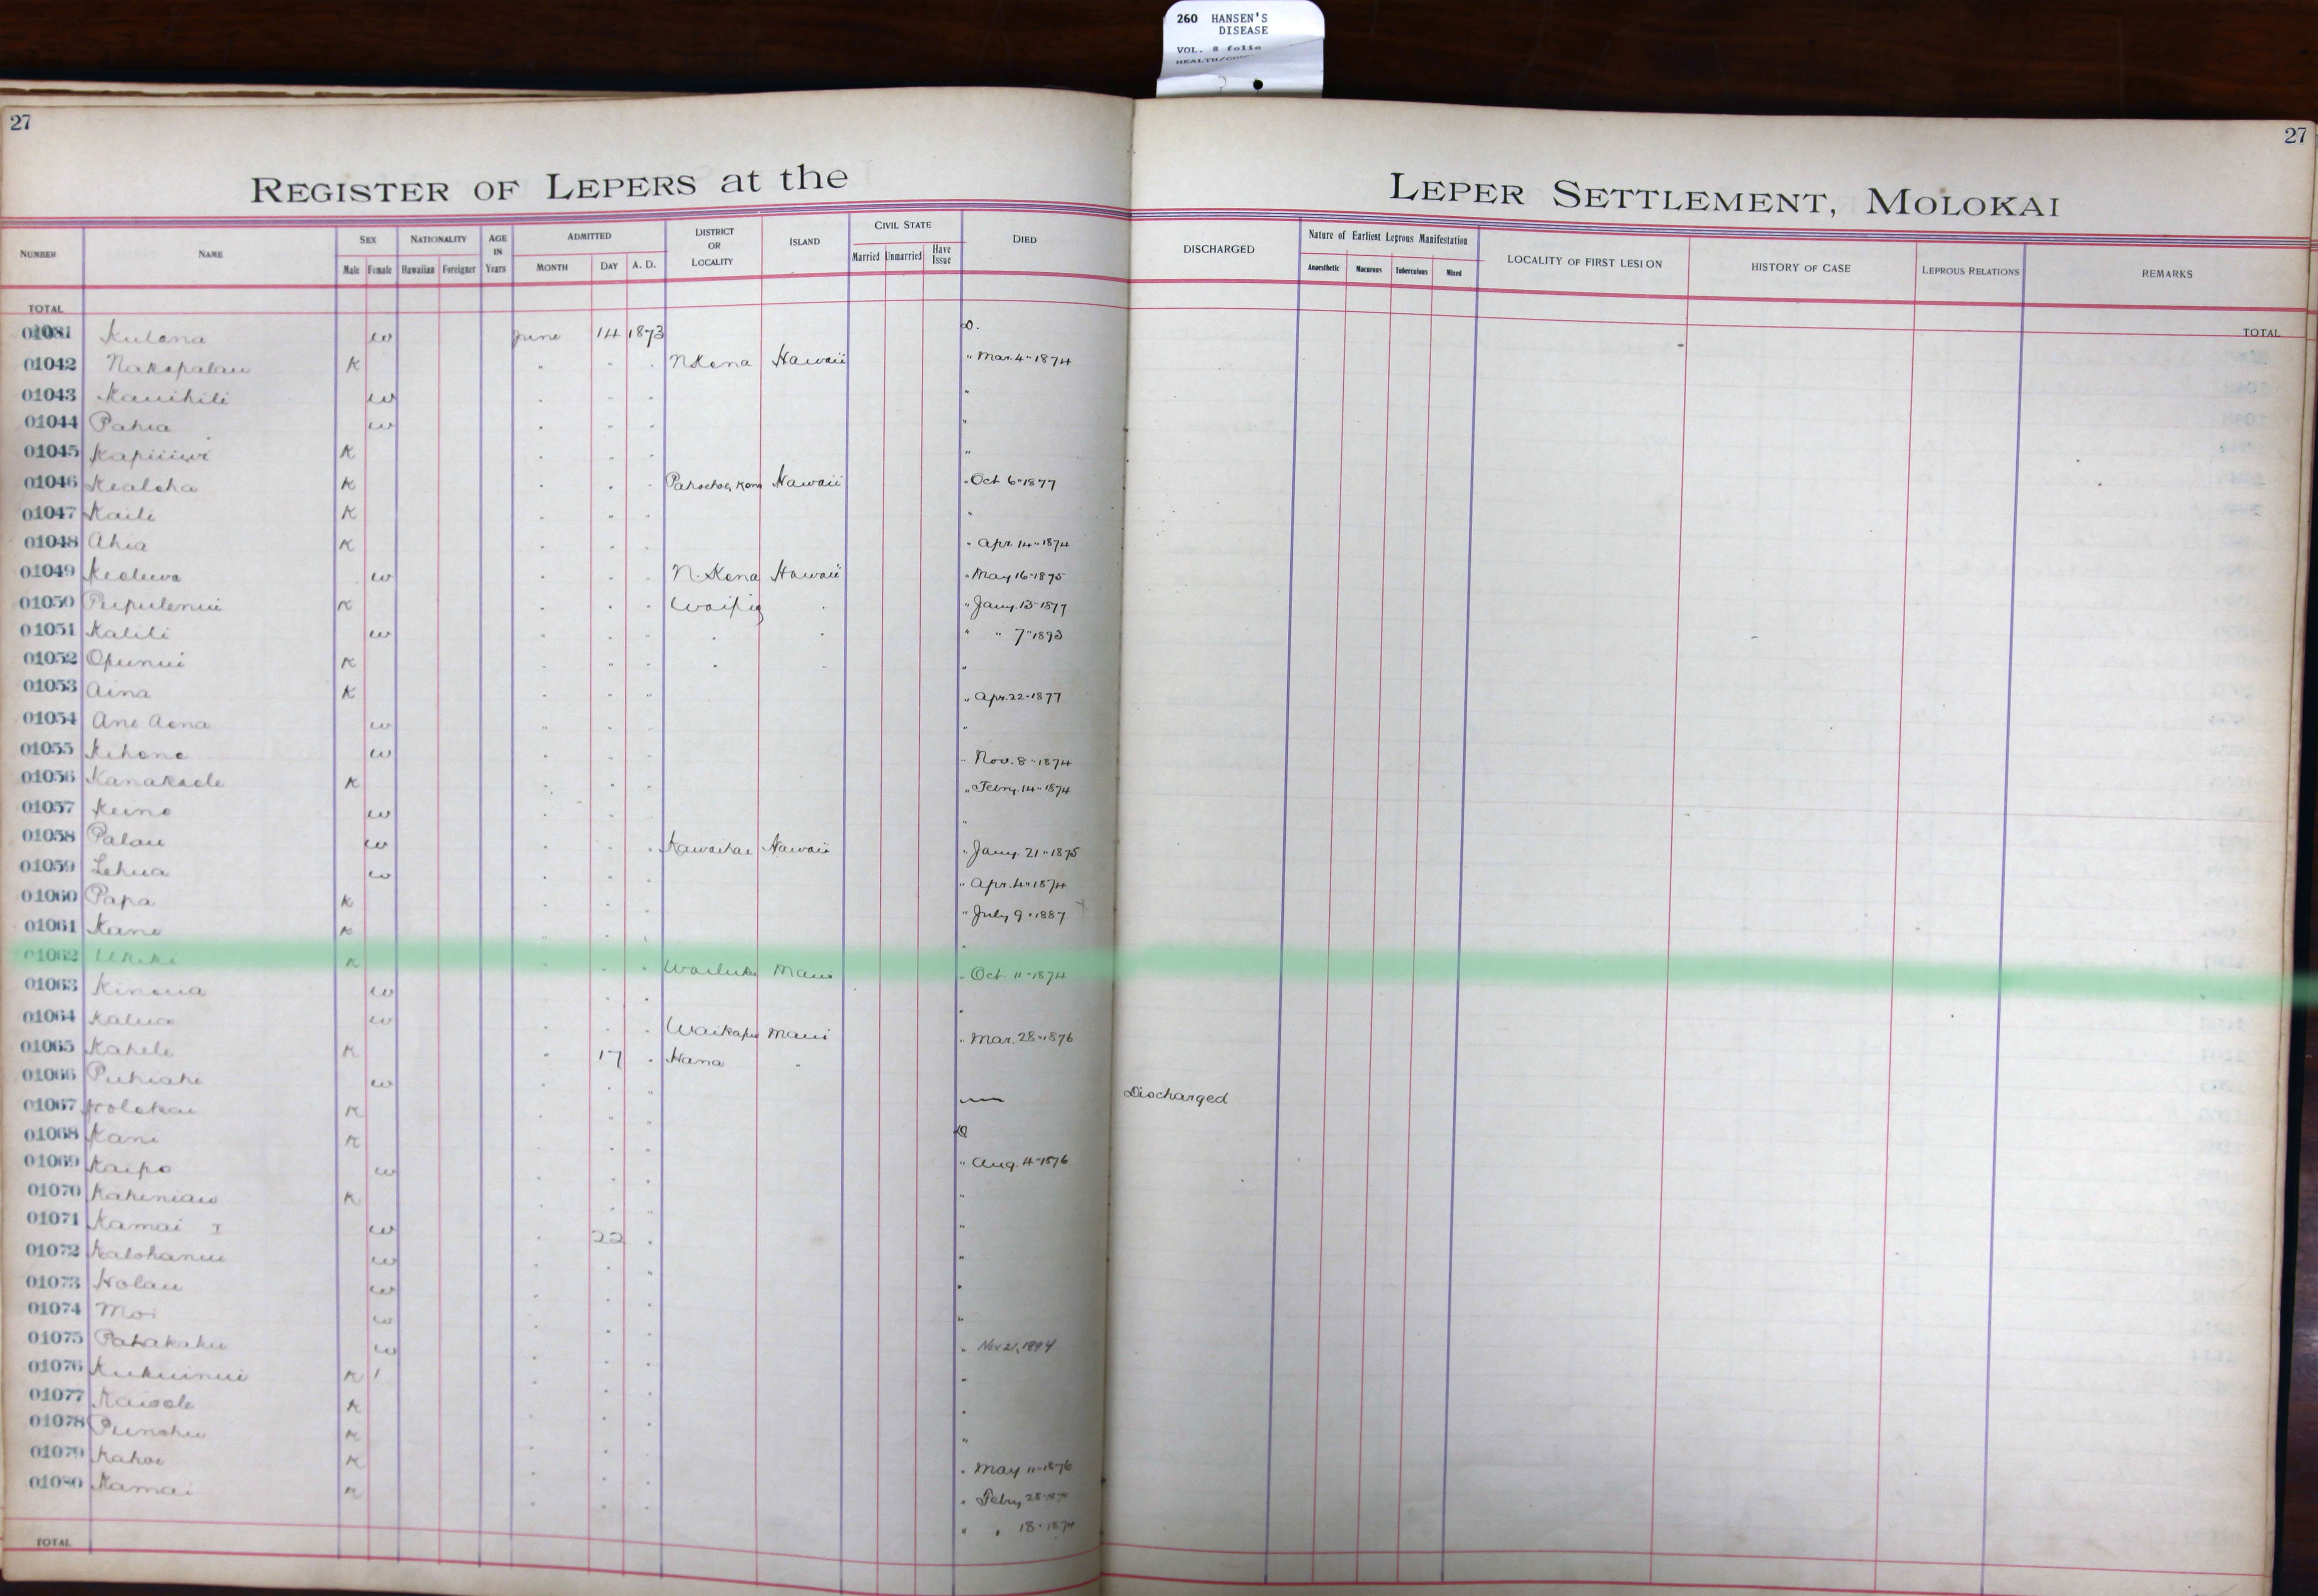 260 HANSEN'S
DISEASE
VOL. 8 folio
HEALTH/
27
27
REGISTER OF LEPERS at the LEPER SETTLEMENT, MOLOKAI
NUMBER NAME SEX NATIONALITY AGE IN Years ADMITTED DISTRICT OR LOCALITY ISLAND CIVIL STATE DIED DISCHARGED Nature of Earliest Leprous Manifestation LOCALITY OF FIRST LESION HISTORY OF CASE LEPROUS RELATIONS REMARKS
Male Female Hawaiian Foreigner MONTH DAY A. D. Married Unmarried Have Issue Anaesthetic Macurous Tuberculous Mixed
TOTAL TOTAL
Kulana w June 14 1873 D.
01042 Nakopalau K " " " N Kona Hawaii " Mar. 4" 1874
01043 Kauihili w " " " "
01044 Pahia w " " " "
01045 K " " " "
01046 Kealoha K " " " Pahoehoe, Kona Hawaii " Oct 6" 1877
01047 Kaili K " " " "
01048 Ahia K " " " " Apr. 14" 1874
01049 Keoluwa w " " " N. Kona Hawaii " May 16" 1875
01050 Pupulenui K " " " Waipio " " Jany. 13" 1877
01051 Kalili w " " " " " " " 7" 1893
01052 Opunui K " " " " " "
01053 Aina K " " " " Apr. 22" 1877
01054 Ane Aona w " " " "
01055 Kihone w " " " " Nov. 8" 1874
01056 Kanakaole K " " " " Febry. 14" 1874
01057 Keino w " " " "
01058 Palau w " " " Kawaihae Hawaii " Jany. 21" 1875
01059 Lehua w " " " " Apr. 4" 1874
01060 Papa K " " " " July 9" 1887
01061 Kane K " " " "
01062 Ukeke K " " " Wailuku Maui " Oct. 11" 1874
01063 Kinoua w " " " "
01064 Kalua w " " " Waikapu Maui " Mar. 28" 1876
01065 Kahele K " 17 " Hana "
01066 Puhiahi w " " " Discharged
01067 Holokai K " " " D
01068 Kani K " " " " Aug. 4" 1876
01069 Kaipo w " " " "
01070 Kahiniau K " " " "
01071 Kamai I w " 22 " "
01072 Kalohanui w " " " "
01073 Holau w " " " "
01074 Moi w " " " " Nov 21, 1894
01075 Pahakaku w " " " "
01076 Kukuinui K 1 " " " "
01077 Kaiole K " " " "
01078 Punohu K " " " " May 11" 1876
01079 Kahoe K " " " " Febry 28"
01080 Kamai K " " " " " 18" 1874
TOTAL